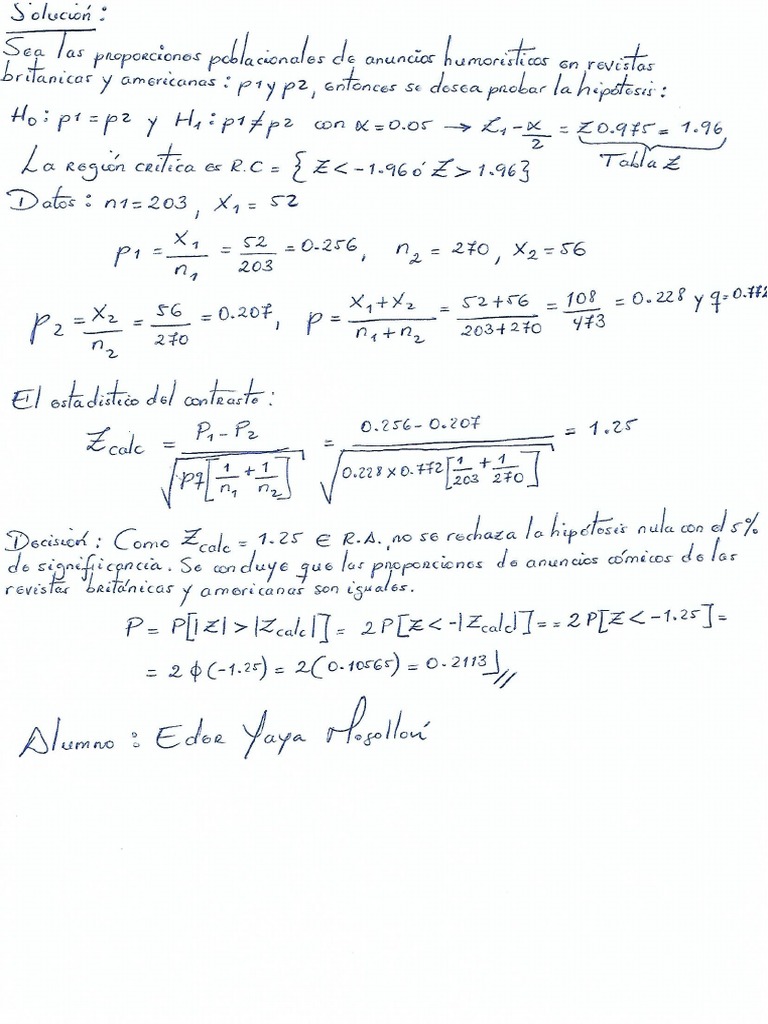 Solución:
Sea las proporciones poblacionales de anuncios humoristicos en revistas
britanicas y americanas: p1 y p2, entonces se desea probar la hipótesis:
H₀: p1 = p2 y H₁: p1 ≠ p2 con α = 0.05 → Z₁-α/2 = Z0.975 = 1.96
Tabla Z
La región critica es R.C = {Z < -1.96 ó Z > 1.96}
Datos: n1 = 203, X₁ = 52
p1 = X₁/n₁ = 52/203 = 0.256, n₂ = 270, X₂ = 56
p₂ = X₂/n₂ = 56/270 = 0.207, p = (X₁+X₂)/(n₁+n₂) = (52+56)/(203+270) = 108/473 = 0.228 y q = 0.772
El estadistico del contraste:
Zcalc = (P₁ - P₂)/√(pq[1/n₁ + 1/n₂]) = (0.256 - 0.207)/√(0.228 x 0.772[1/203 + 1/270]) = 1.25
Decisión: Como Zcalc = 1.25 ∈ R.A., no se rechaza la hipótesis nula con el 5%
de significancia. Se concluye que las proporciones de anuncios cómicos de las
revistas británicas y americanas son iguales.
P = P[|Z| > |Zcalc|] = 2P[Z < -|Zcalc|] = = 2P[Z < -1.25] =
= 2 ϕ(-1.25) = 2(0.10565) = 0.2113 //
Alumno: Edor Yaya Mogollón